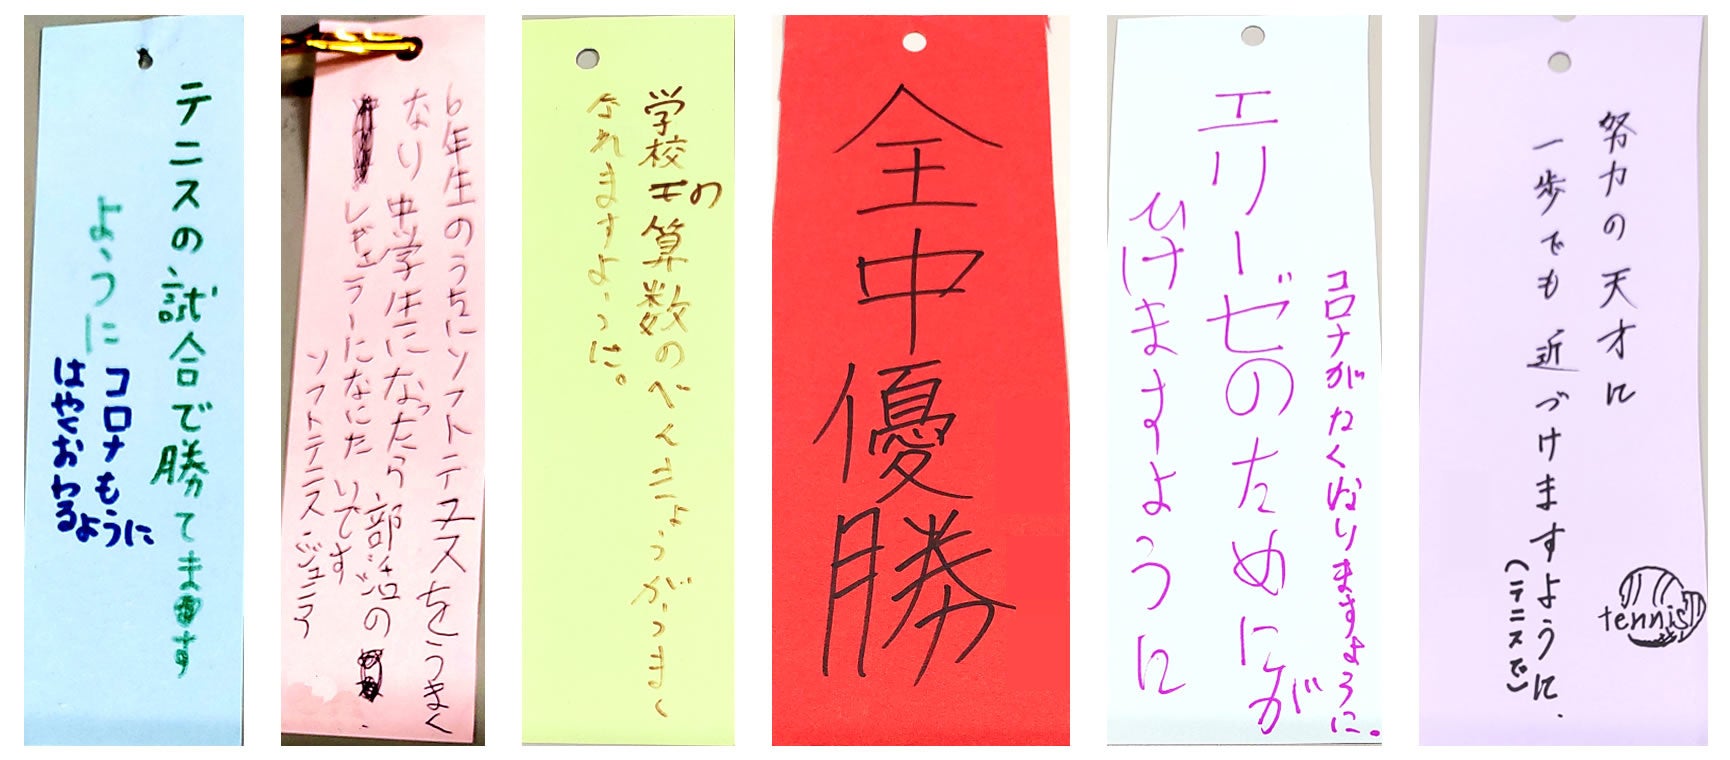 テニスの試合で勝てます
ように
コロナも
はやくおわるように
6年生のうちにソフトテニスをうまく
なり 中学生になったら 部活の
レギュラーになにたいです
ソフトテニスジュニア
学校の算数のべんきょうがうまく
なれますように。
全中優勝
エリーゼのためにが
ひけますように
コロナがなくなりますように。
努力の天才に
一歩でも近づけますように.
(テニスで)
tennis